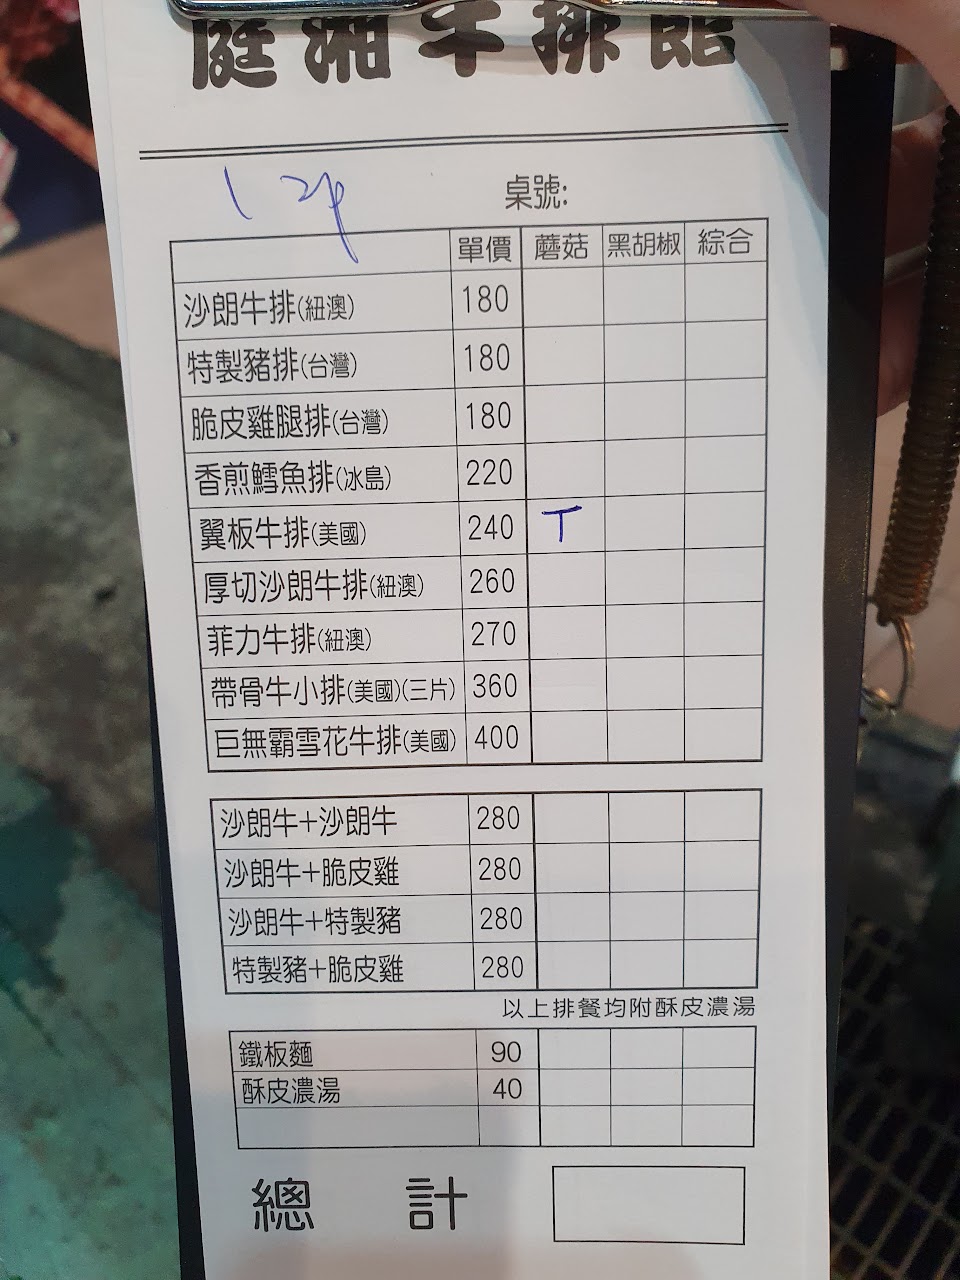 庭湘牛排館
桌號:
單價 蘑菇 黑胡椒 綜合
沙朗牛排(紐澳) 180
特製豬排(台灣) 180
脆皮雞腿排(台灣) 180
香煎鱈魚排(冰島) 220
翼板牛排(美國) 240 T
厚切沙朗牛排(紐澳) 260
菲力牛排(紐澳) 270
帶骨牛小排(美國)(三片) 360
巨無霸雪花牛排(美國) 400
沙朗牛+沙朗牛 280
沙朗牛+脆皮雞 280
沙朗牛+特製豬 280
特製豬+脆皮雞 280
以上排餐均附酥皮濃湯
鐵板麵 90
酥皮濃湯 40
總計